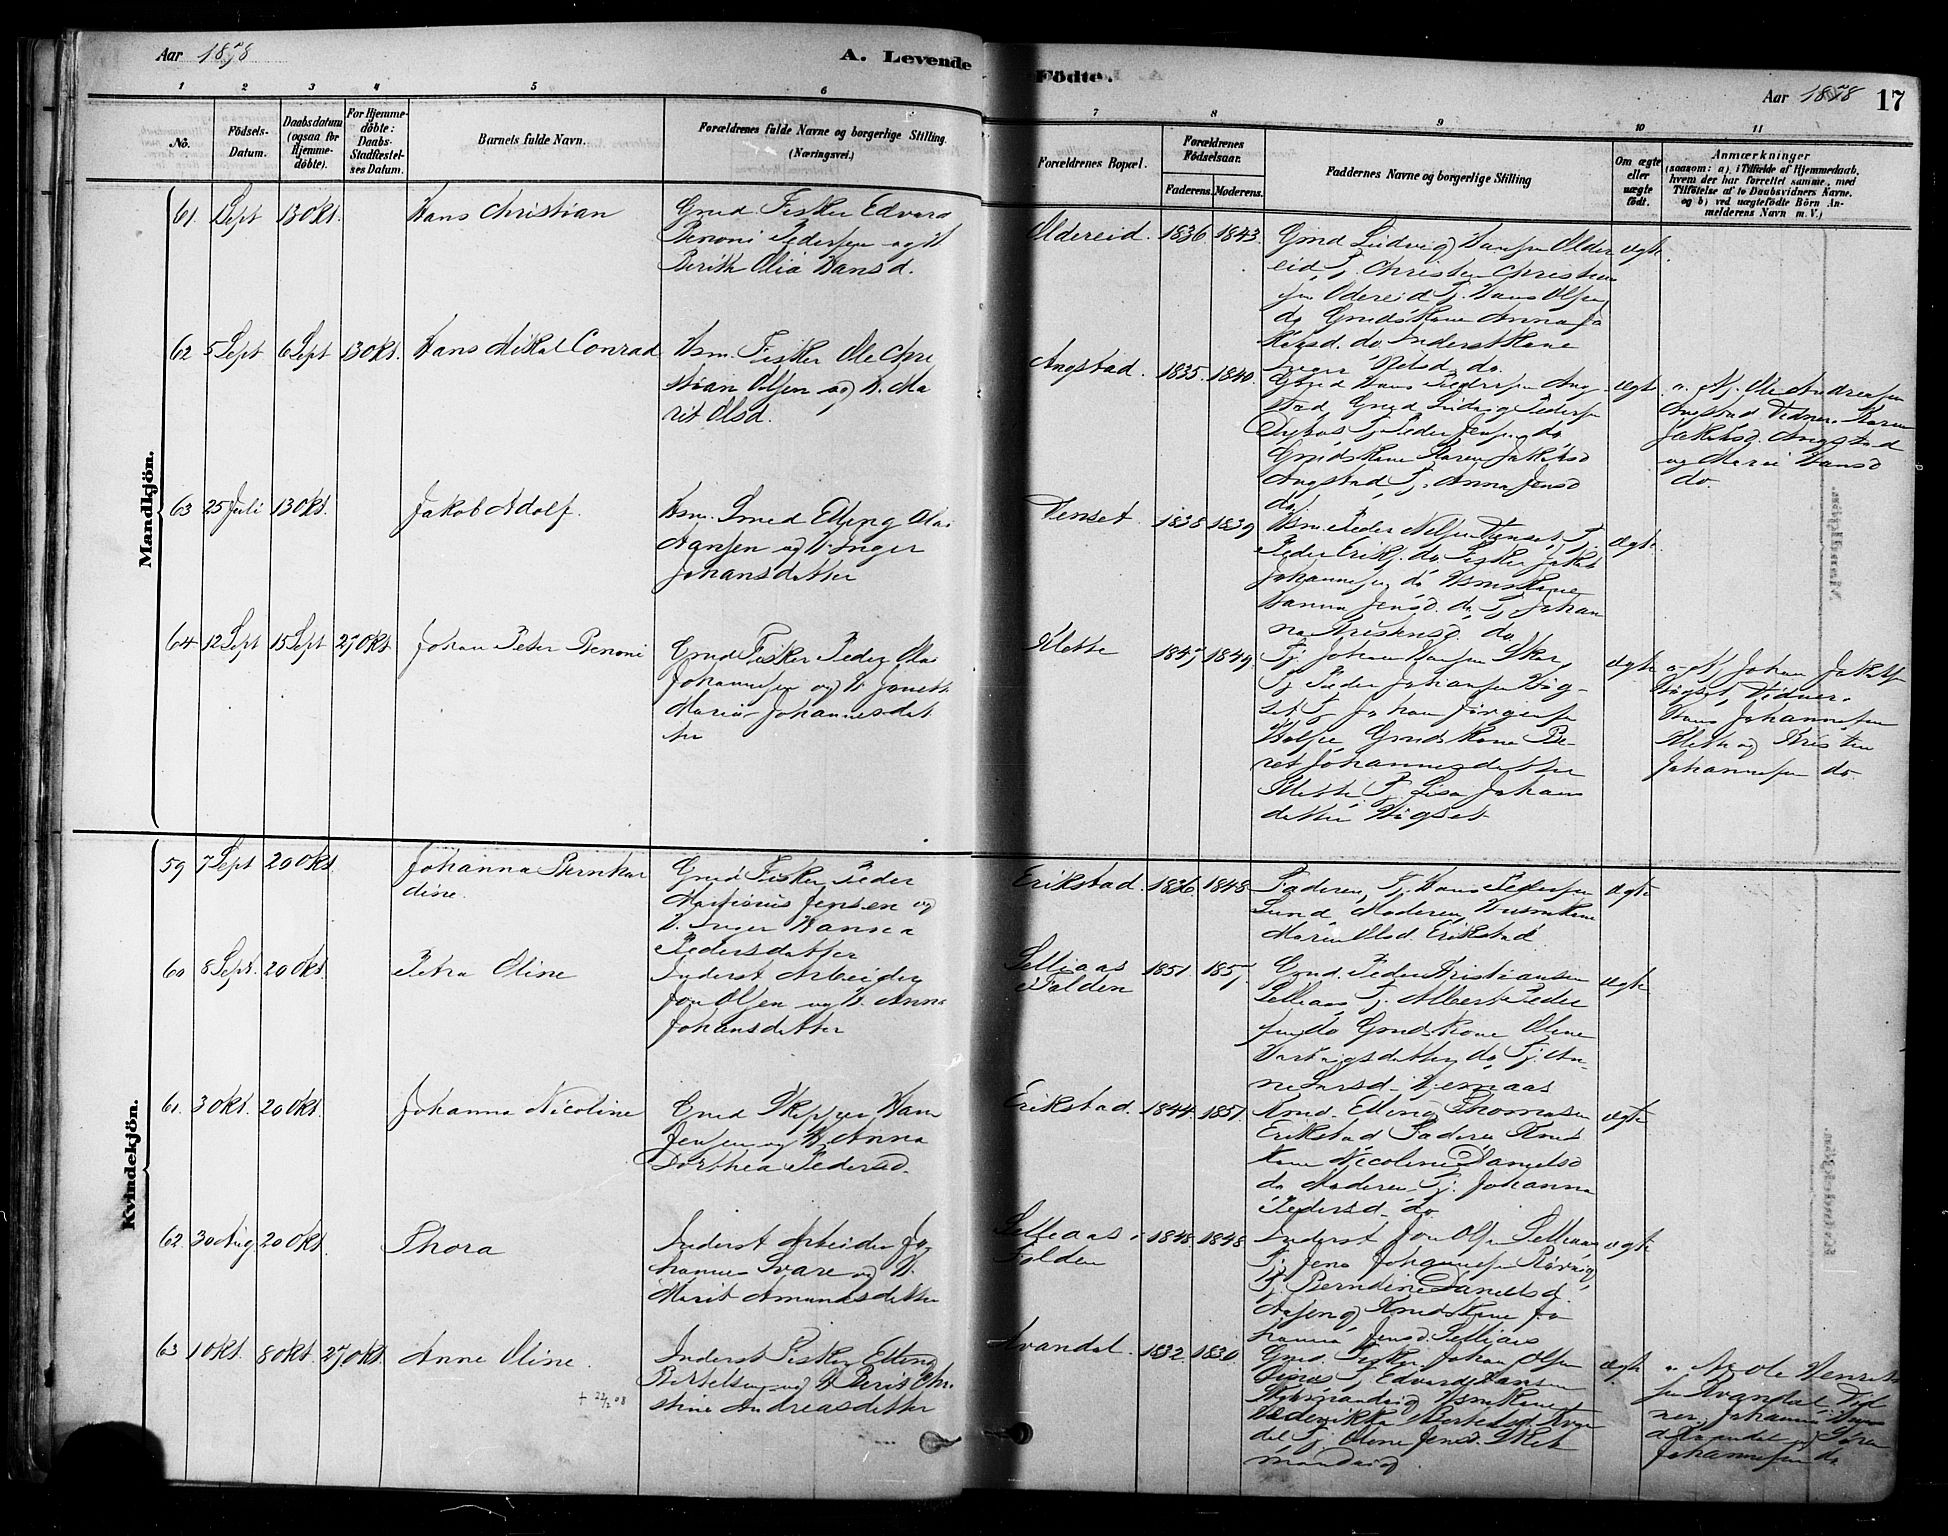 Aar 1878
A. Levende
Fødte.
Aar 1878
17
1 2 3 4 5 6 7 8 9 10 11
No.
Födsels-Datum.
Daabsdatum (ogsaa for Hjemmedöbte).
For Hjemmedöbte: Daabs-Stadfæstelses Datum.
Barnets fulde Navn.
Forældrenes fulde Navne og borgerlige Stilling.
(Næringsvei.)
Forældrenes Bopæl.
Forældrenes Födselsaar.
Faderens. Moderens.
Faddernes Navne og borgerlige Stilling
Om ægte eller uægte födt.
Anmærkninger
(saasom: a) i Tilfælde af Hjemmedaab, hvem der har forrettet samme, med Tilföielse af to Daabsvidners Navne, og b) ved uægtefödte Börn Anmelderens Navn m. V.)
Mandkjön.
61. Sept 13 Okt. Hans Christian
Gmd. Fisker Edvard
Benoni Pedersen og H
Berit Olia Hansd.
Oldereid. 1836 1843.
Gmd Ludvig Hansen Older
eid, Tj. Christen Christian
do Gmds Kone Anna Ja
kobsd. do. Inderst Kone
Nilsd. do.
ægte.
62 5 Sept 6 Sept 13 Okt. Hans Mikal Conrad
Hsm. Fisker Ole Chri
stian Olsen og H. Ma
rit Olsd.
Angstad. 1835. 1840.
Gmd Hans Pedersen Ang
stad, Gmd Ludvig Peders
Tj. Peder Jensen do
Gmds Kone Karen Jakobsd
Angstad, Tj. Anna Jensd
do.
ægte
a. Af Ole Andreasen
Angstad Vidner Karen
Jakobsd. Angstad
og Marie Hansd
do.
63 25 Juli 13 Okt. Jakob Adolf.
Hsm. Smed Elling Olai
Hansen og H. Inger
Johansdatter
Venset. 1838 1839
Hsm. Peder Nilsen Venset, Tj.
Peder Eriks. do. Fisker Jakob
Johannesen do Hsms Kone
Hanna Jensd. do, Tj. Johan
na Kristensd. do.
ægte.
64 12 Sept 15 Sept 27 Okt. Johan Peter Benoni
Gmd Fisker Peder Olai
Johannesen og H. Janett
Maria Johannesdat
ter
Klette 1847, 1849.
Tj. Johan Hansen Skar,
Tj. Peder Johansen Høg-
set Tj. Johan Jørgensen
Gmds Kone Be
ret Johannesdatter
Klette Tj. Lisa Johans
datter Høgset
ægte
a. Af Johan Jakobs
Høgset, Vidner.
Hans Johannesen
Klette og Kristen
Johannesen do.
Kvindekjön.
59 7 Sept 20 Okt. Johanna Bernhar
dine.
Gmd Fisker Peder
Martinus Jensen og
H. Inger Hansea
Pedersdatter
Erikstad. 1836. 1848.
Faderen, Tj. Hans Pedersen
Lund, Moderen, Husm. Kone
Maren Olsd. Erikstad.
ægte
60 8 Sept. 20 Okt. Petra Oline
Inderst Arbeider
Jon Olsen og H. Anna
Johansdatter
Selliaas
i Folden 1851. 1857,
Gmd. Peder Kristiansen
Selliaas Tj. Albert Peder
sen do Gmds Kone Oline
Hartvigsdatter do. Tj. An-
ne Larsd. Hjemaas
ægte
61. 3 Okt. 20 Okt. Johanna Nicoline
Gmd Skipper Hans
Jensen og H. Anna
Dorthea Pedersd.
Erikstad. 1844. 1851.
Kmd. Elling Thomasen
Erikstad Faderen Kmds
Kone Nicoline Danielsd
do Moderen Tj. Johanna
Pedersd. do
ægte
62. 30 Aug 20 Okt. Thora
Inderst Arbeider Jo
hannes Svare og H.
Marit Amundsdatter
Selliaas i
Folden 1848. 1848
Inderst Jon Olsen Selliaas
Tj. Jens Johannesen Rørvig,
Tj. Berndine Danielsd.
Aaseng Kmds Kone Jo
hanna Jensd. Selliaas
ægte
63 1 Okt. 8 Okt. 27 Okt. Anne Oline.
Inderst Fisker Elling
Bertelsen og H. Berit Chri
stine Andreasdatter
+ 22/2 08
Kvandal. 1832. 1830.
Gmd. Fisker Johan Olsen
Tj. Edvard Hansen
Hsm Kone
Bertelsd. Kvan
dal Tj. Oline Jensd.
ægte.
a. Af Ole Henrik
sen Kvandal Vid
ner, Johanna
Kvandal og
Johannesen do